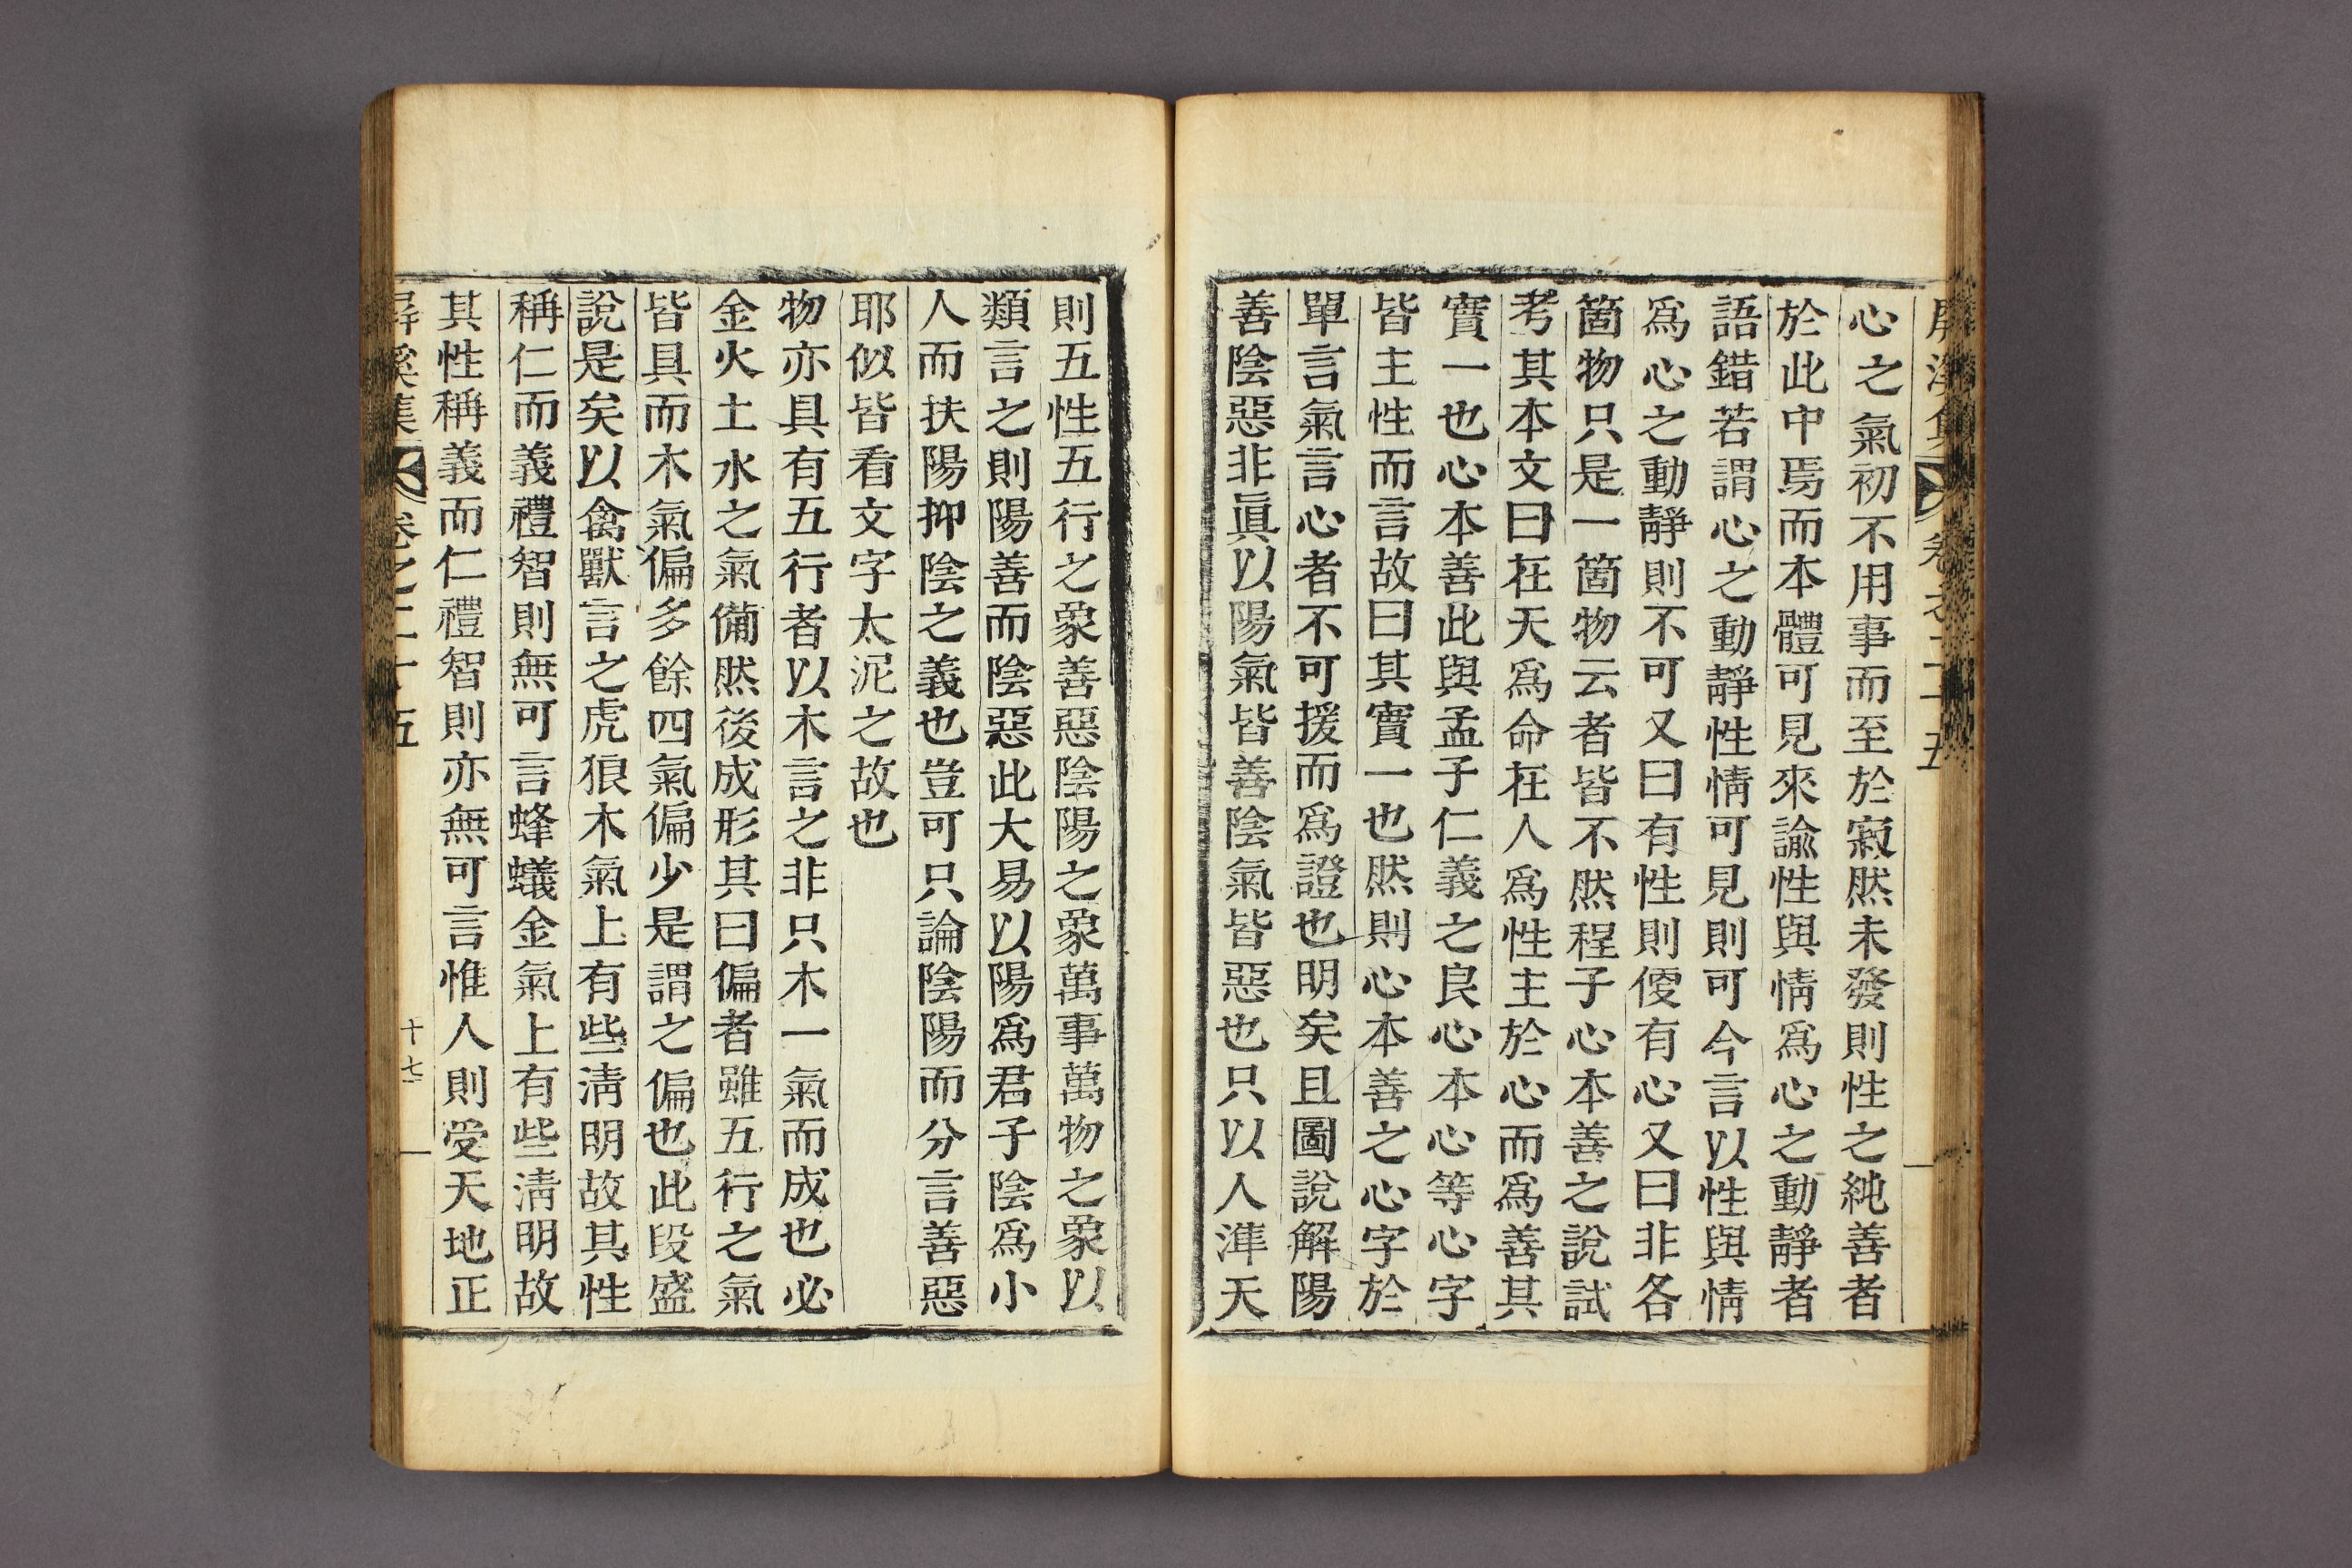 屛溪集 卷之二十五
心之氣初不用事而至於寂然未發則性之純善者
於此中焉而本體可見來諭性與情爲心之動靜者
語錯若謂心之動靜性情可見則可今言以性與情
爲心之動靜則不可又曰有性則便有心又曰非各
箇物只是一箇物云者皆不然程子心本善之說試
考其本文曰在天爲命在人爲性主於心而爲善其
實一也心本善此與孟子仁義之良心本心等心字
皆主性而言故曰其實一也然則心本善之心字於
單言氣言心者不可援而爲證也明矣且圖說解陽
善陰惡非眞以陽氣皆善陰氣皆惡也只以人準天
則五性五行之象善惡陰陽之象萬事萬物之象以
類言之則陽善而陰惡此大易以陽爲君子陰爲小
人而扶陽抑陰之義也豈可只論陰陽而分言善惡
耶似皆看文字太泥之故也
物亦具有五行者以木言之非只木一氣而成也必
金火土水之氣備然後成形其曰偏者雖五行之氣
皆具而木氣偏多餘四氣偏少是謂之偏也此段盛
說是矣以禽獸言之虎狼木氣上有些淸明故其性
稱仁而義禮智則無可言蜂蟻金氣上有些淸明故
其性稱義而仁禮智則亦無可言惟人則受天地正
屛溪集 卷之二十五 十七